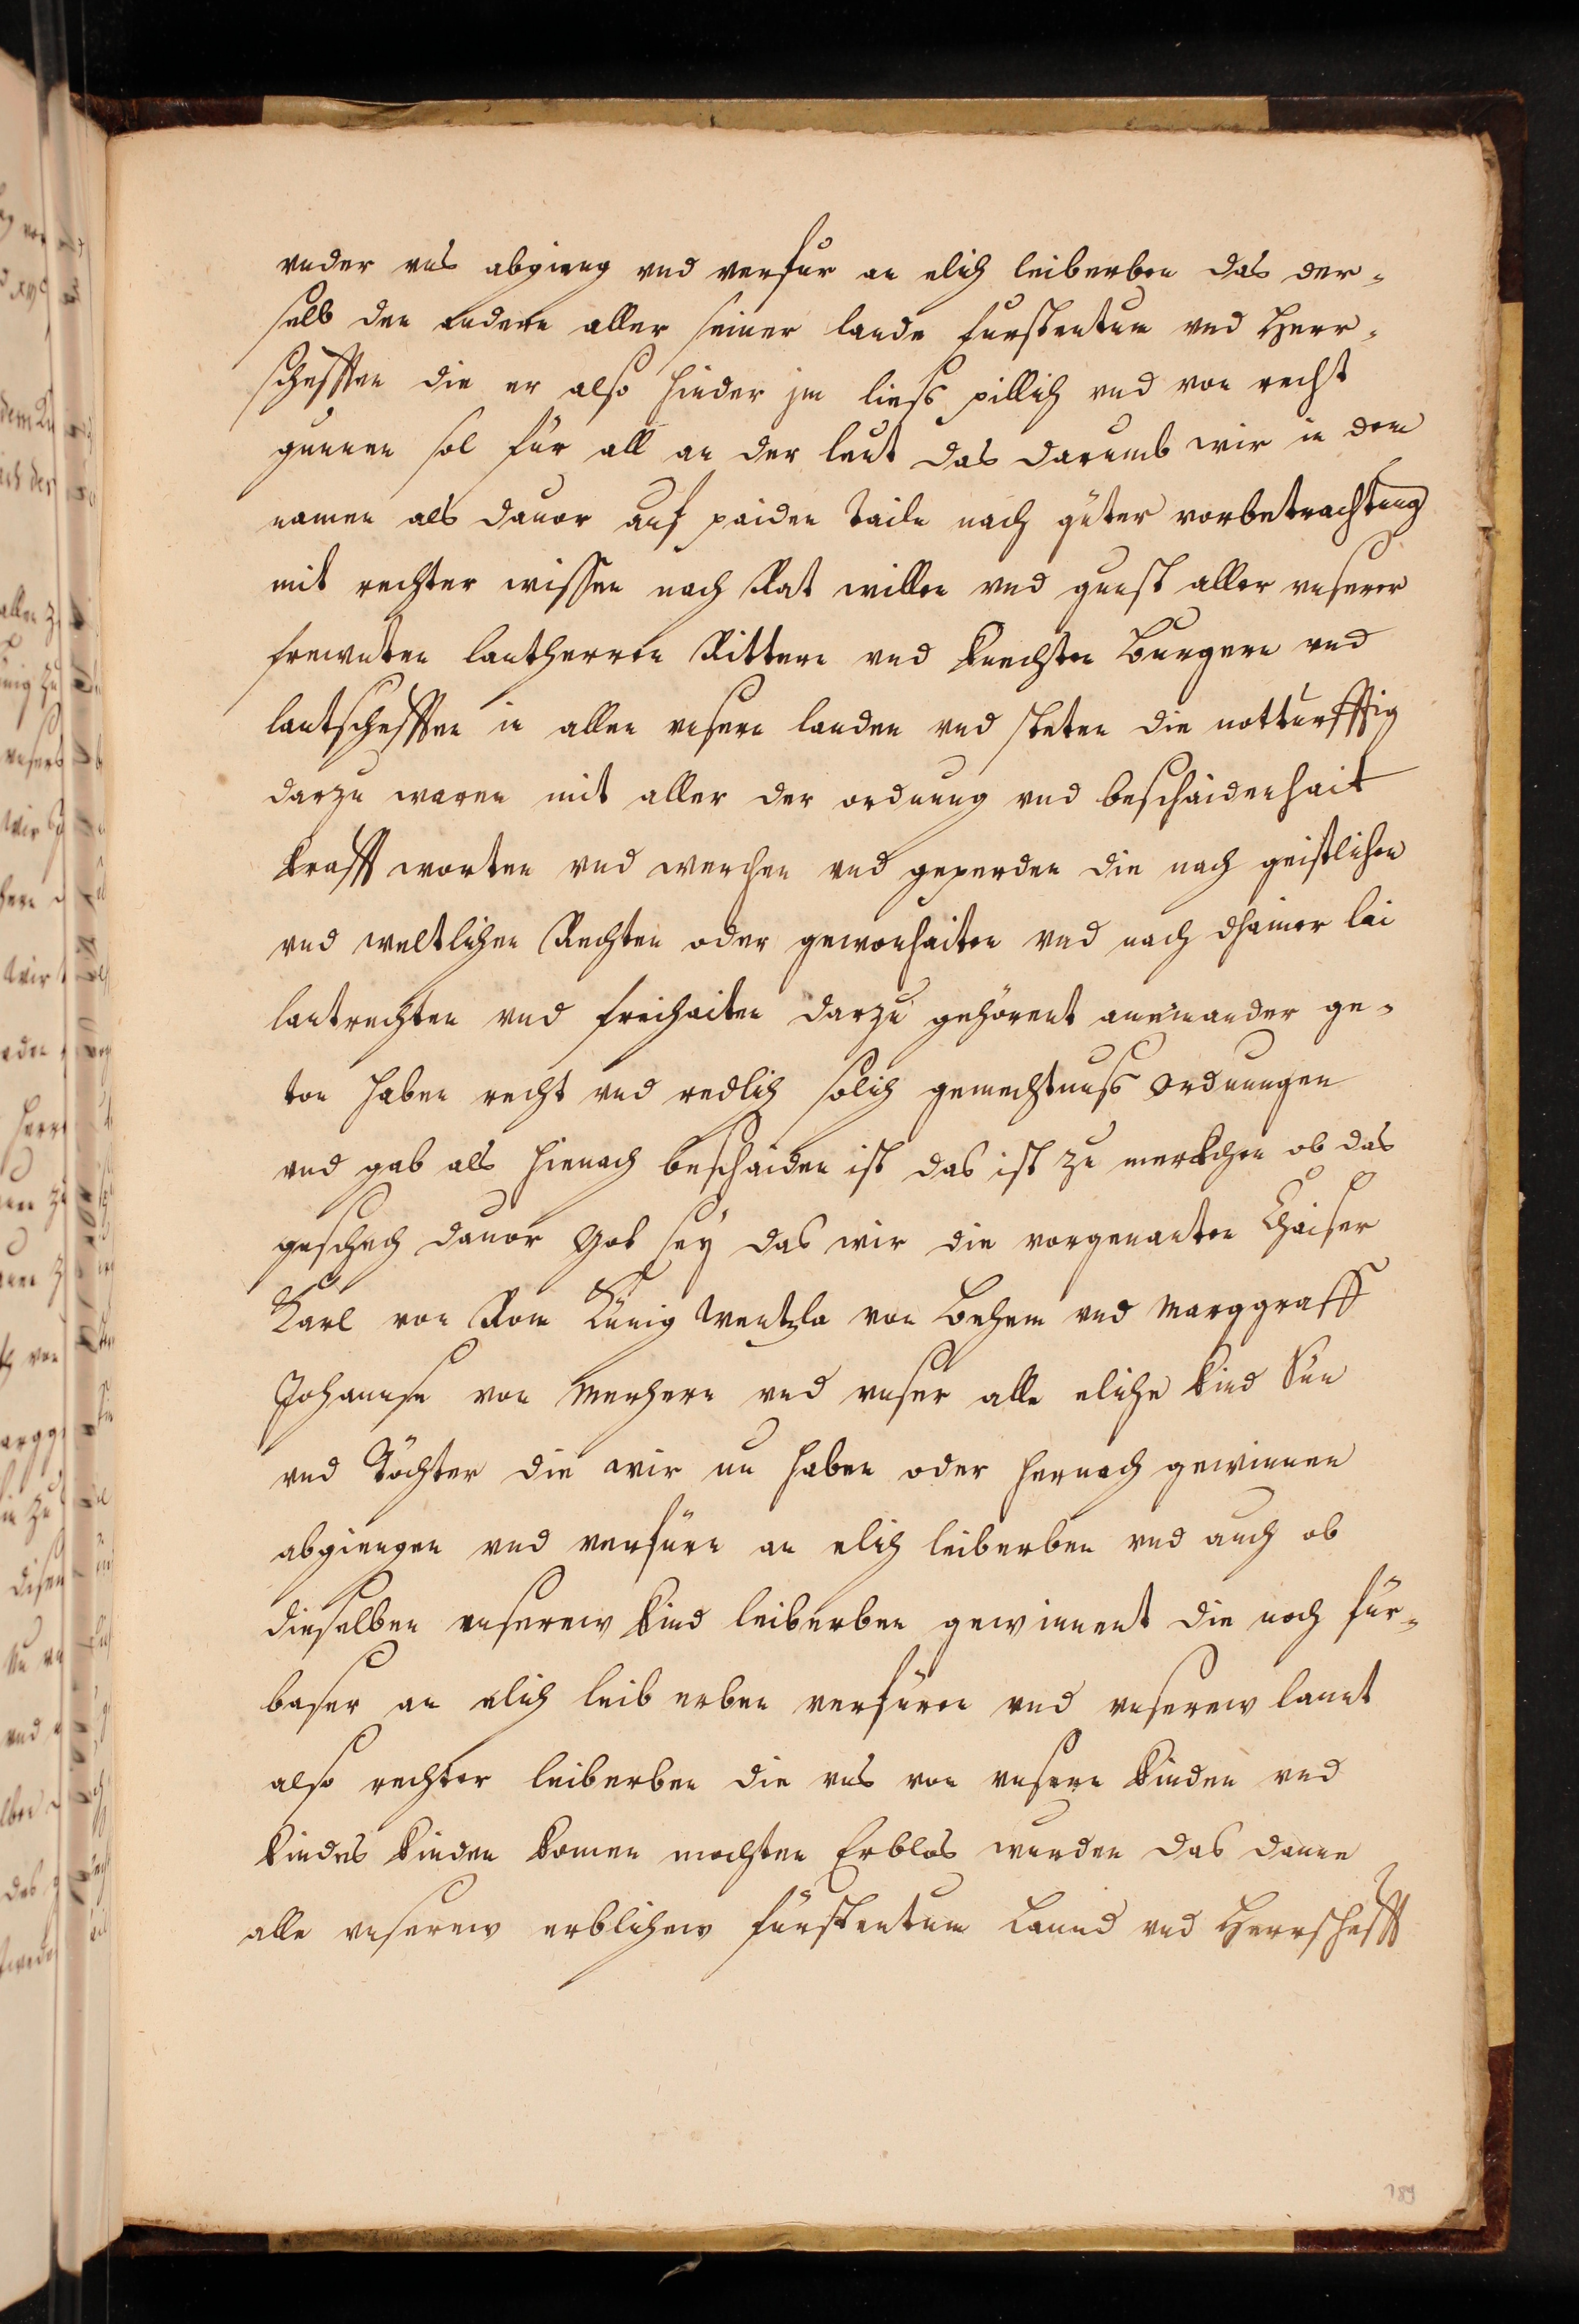 vnder vns abgieng vnd verfur an elich leiberben das der-
selb den andern aller seiner lande furstentum vnd Herr-
scheffften die er also hinder jm liess pillich vnd von recht
gunnen sol für all an der leut das darumb wir in dem
namen als dauor auf paiden tailn nach güter vorbetrachtung
mit rechter wissen nach Rat willen vnd gunst aller vnserer
frewnten lantherren Rittern vnd knechten Burgern vnd
lantschefften in allen vnsern landen vnd steten die notturfftig
darzu waren mit aller der ordnung vnd beschaidenhait
krafft worten vnd werchen vnd geperden die nach geistlichen
vnd weltlichen Rechten oder gewonhaiten vnd nach dhainer lai
lantrechten vnd freihaiten darzu gehörent aneinander ge-
ton haben recht vnd redlich solich gemechtnuss Ordnungen
vnd gab als hienach beschaiden ist das ist zu merkchen ob das
geschech dauor Got sey das wir die vorgenanten Chaiser
Karl von Rom Künig Wentzla von Behem vnd Marggraff
Johannse von Merhern vnd vnser alle eliche kind Sün
vnd Töchter die wir nu haben oder hernach gewinnen
abgiengen vnd verfürn an elich leiberben vnd auch ob
dieselben vnserew kind leiberben gewinnent die noch für-
baser an elich leib erben verfüren vnd vnserew lannt
also rechter leiberben die vns von vnsern kinden vnd
kindes kinden komen mochten Erblos wurden das danne
alle vnserew erblichew fürstentum Lannd vnd Herrschefft
189